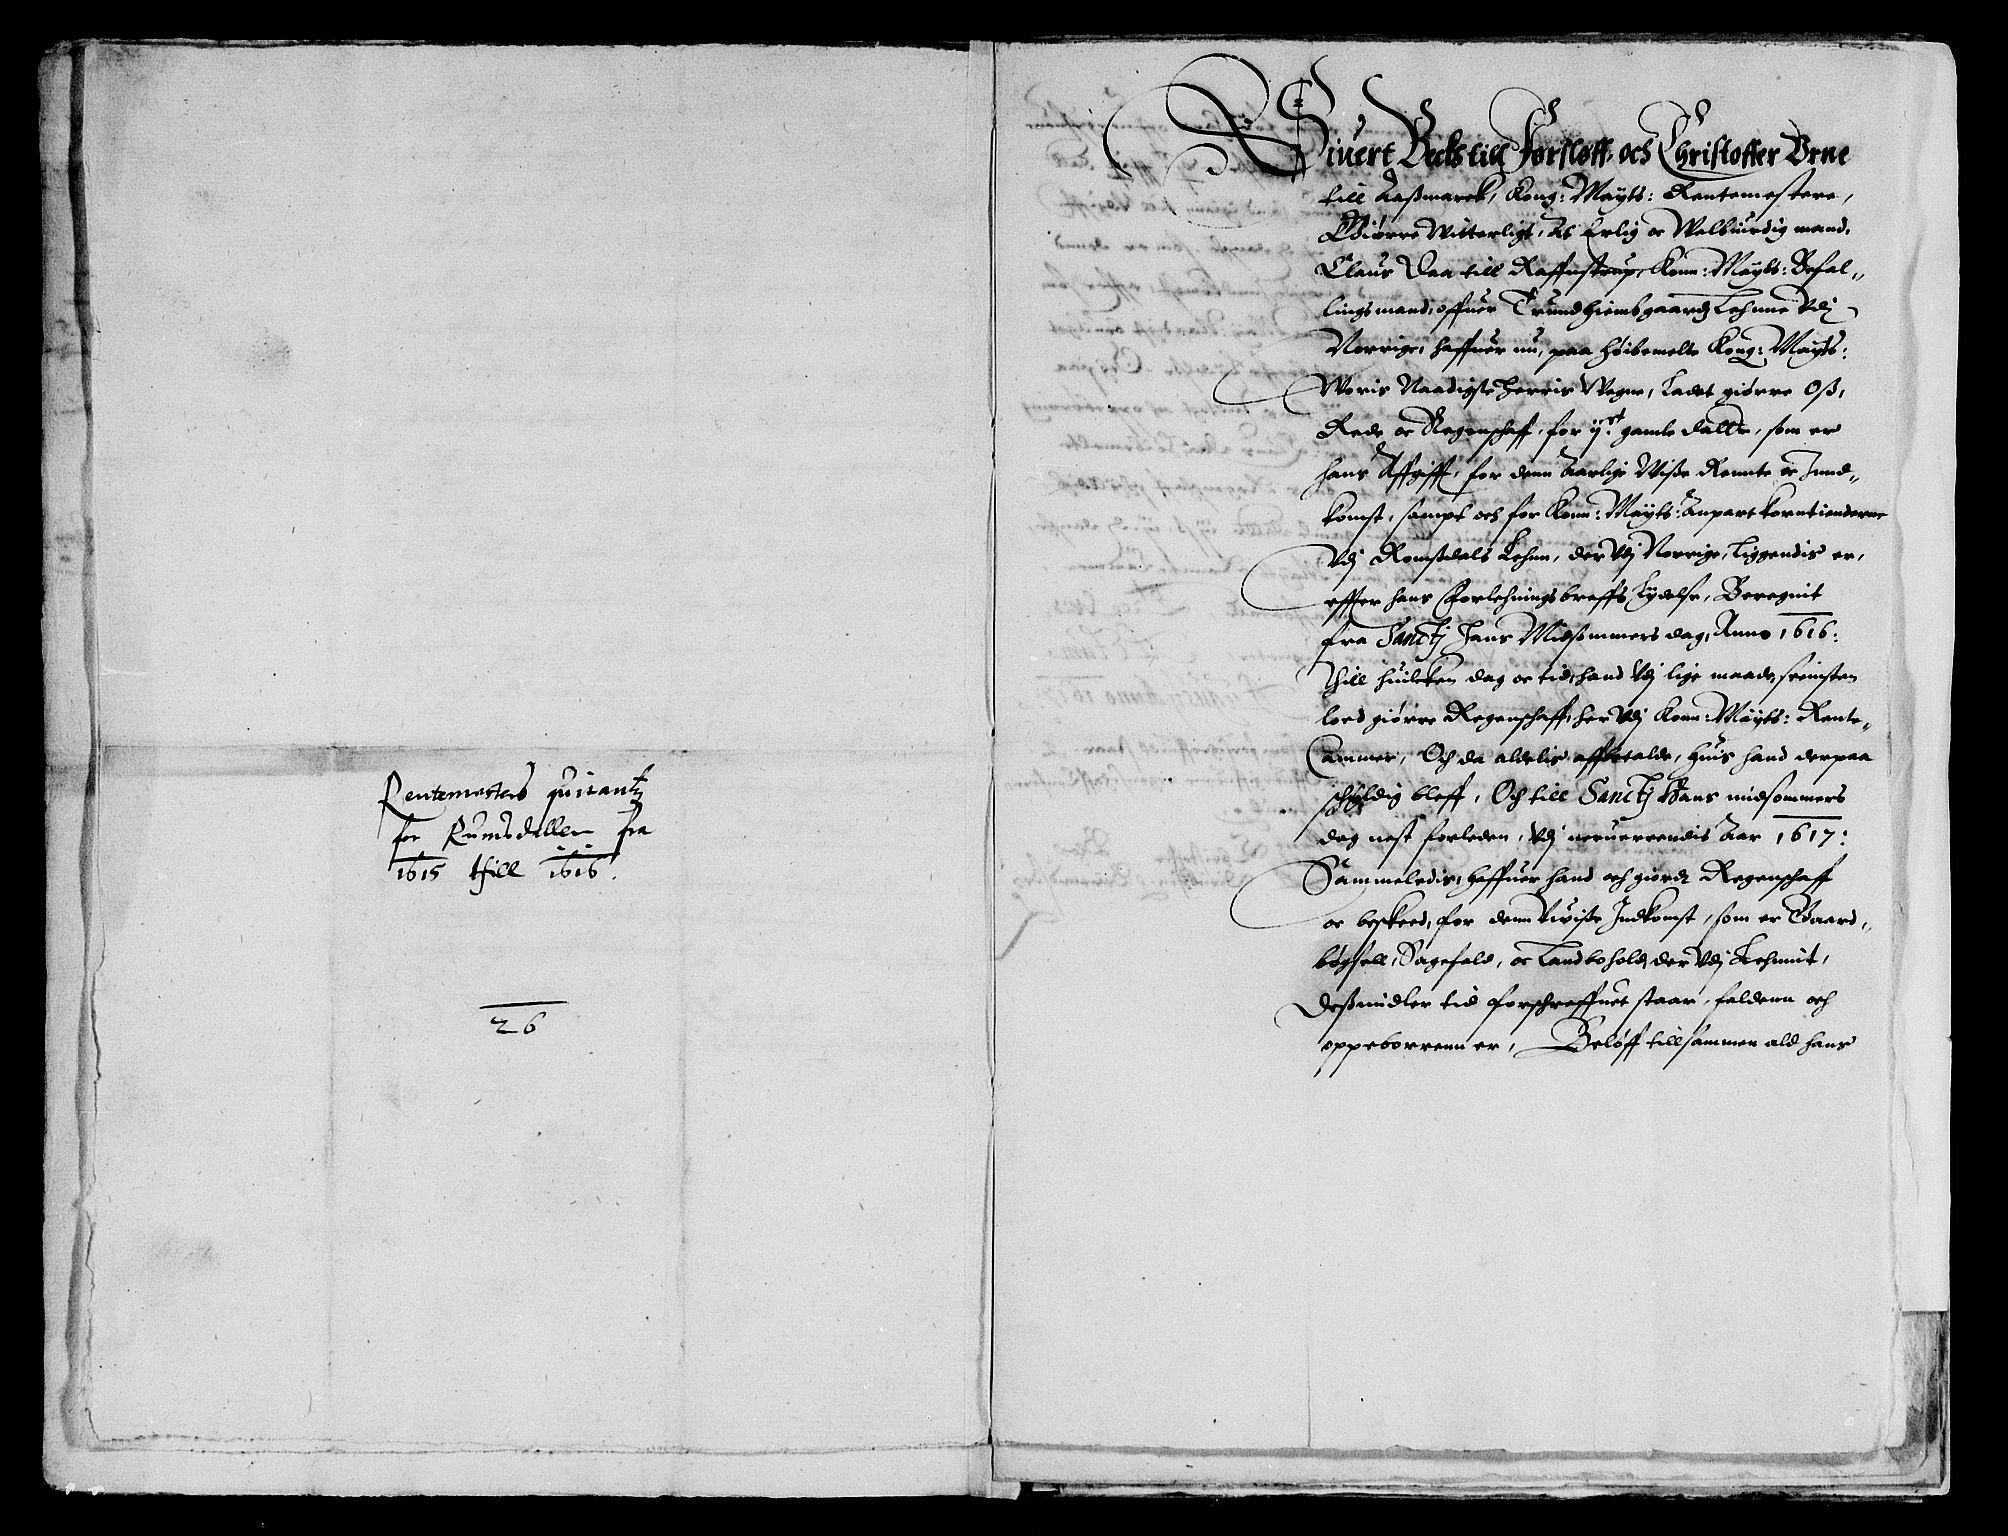 Rentemesters quitantz
for Rumsdallen fra
1615 thill 1616.
26
Siuert Beck till Førsløff, och Christoffer Vrne
till Aaßmarck, Kong: Mayts: Rentemestere,
Giørre Witterligt, At Erlig oc Welbiurdig mand,
Claus Daa till Raffnstrup, Konn: Mayts: Befal-
lingsmand, offuer Trundhiembsgaardz Lehnne vdj
Norrige, haffuer nu, paa høibemelte Kong: Mayts:
Woris Naadigste Herris Wegne, Ladet giørre Oß,
Rede oc Regenschaff, for ijc gamle daller, som er
hans Affgifft, for denn Aarlige Wiße Rennte oc Jnd-
komst, sampt och for Konn: Mayts: Anpart korntienderne
Vdj Romsdals Lehnn, der Vdj Norrige, Liggendis er,
effter hans Forlehnings breffs Lydelse, Beregnit
fra Sanctj Hans Midsommers dag, Anno 1616:
Thill huilcken dag oc tid, hand Vdj lige maade, seinisten
loed giørre Regenschaff, her Vdj Konn: Mayts: Rente-
Cammer, Och da aldelis affbetalde, huis hand derpaa
schyldig bleff, Och till Sanctj Hans midsommers
dag nest forleden, Vdj neruerendis Aar 1617:
Sammeledis, haffuer hand och giordt Regenschaff
oc beskeed, for denn Vwiße Indkomst, som er Gaard-
bøgsell, Sagefald, oc Landbohold, der Vdj Lehnnit,
Deßmidler tid forschreffuet staar, faldenn och
oppeborrenn er, Beløff tillsammen ald hans